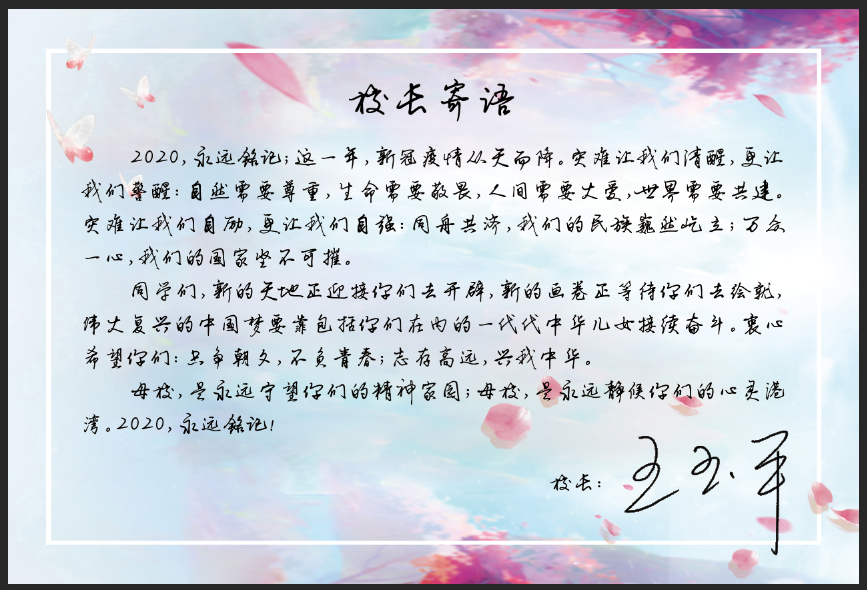 校长寄语
2020,永远铭记;这一年,新冠疫情从天而降。灾难让我们清醒,更让
我们警醒:自然需要尊重,生命需要敬畏,人间需要大爱,世界需要共建。
灾难让我们自励,更让我们自强:同舟共济,我们的民族巍然屹立;万众
一心,我们的国家坚不可摧。
同学们,新的天地正迎接你们去开辟,新的画卷正等待你们去绘就,
伟大复兴的中国梦要靠包括你们在内的一代代中华儿女接续奋斗。衷心
希望你们:只争朝夕,不负青春;志存高远,兴我中华。
母校,是永远守望你们的精神家园;母校,是永远静候你们的心灵港
湾。2020,永远铭记!
校长: 王玉军